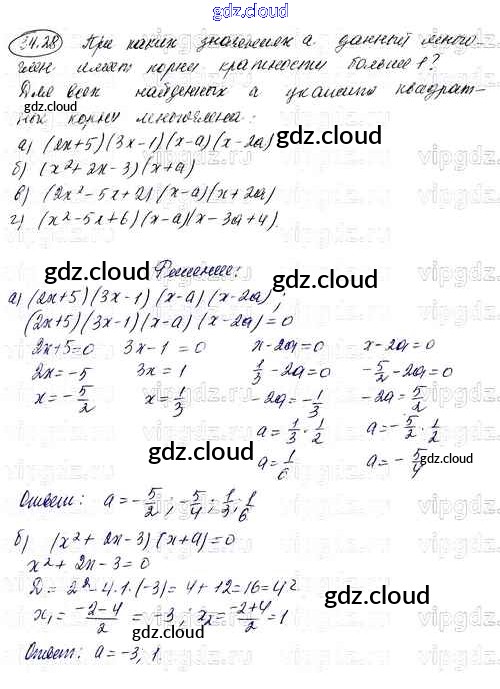 gdz.cloud
34.28 При каких значениях а данный много-
член имеет корни кратности больше 1?
Для всех найденных а укажите квадрат-
ные корни многочлена:
а) (2x+5)(3x-1)(x-a)(x-2a)
б) (x²+2x-3)(x+a)
в) (2x²-5x+2)(x-a)(x+2a)
г) (x²-5x+6)(x-a)(x-3a+4).
Решение:
а) (2x+5)(3x-1)(x-a)(x-2a);
(2x+5)(3x-1)(x-a)(x-2a)=0
2x+5=0 3x-1=0 x-2a=0 x-2a=0
2x=-5 3x=1 1/3-2a=0 -5/2-2a=0
x=-5/2 x=1/3 -2a=-1/3 -2a=5/2
a=1/3·1/2 a=-5/2·1/2
a=1/6 a=-5/4
Ответ: a=-5/2; -5/4; 1/3; 1/6
б) (x²+2x-3)(x+a)=0
x²+2x-3=0
D=2²-4·1·(-3)=4+12=16=4²
x₁=(-2-4)/2=-3; x₂=(-2+4)/2=1
Ответ: a=-3, 1.